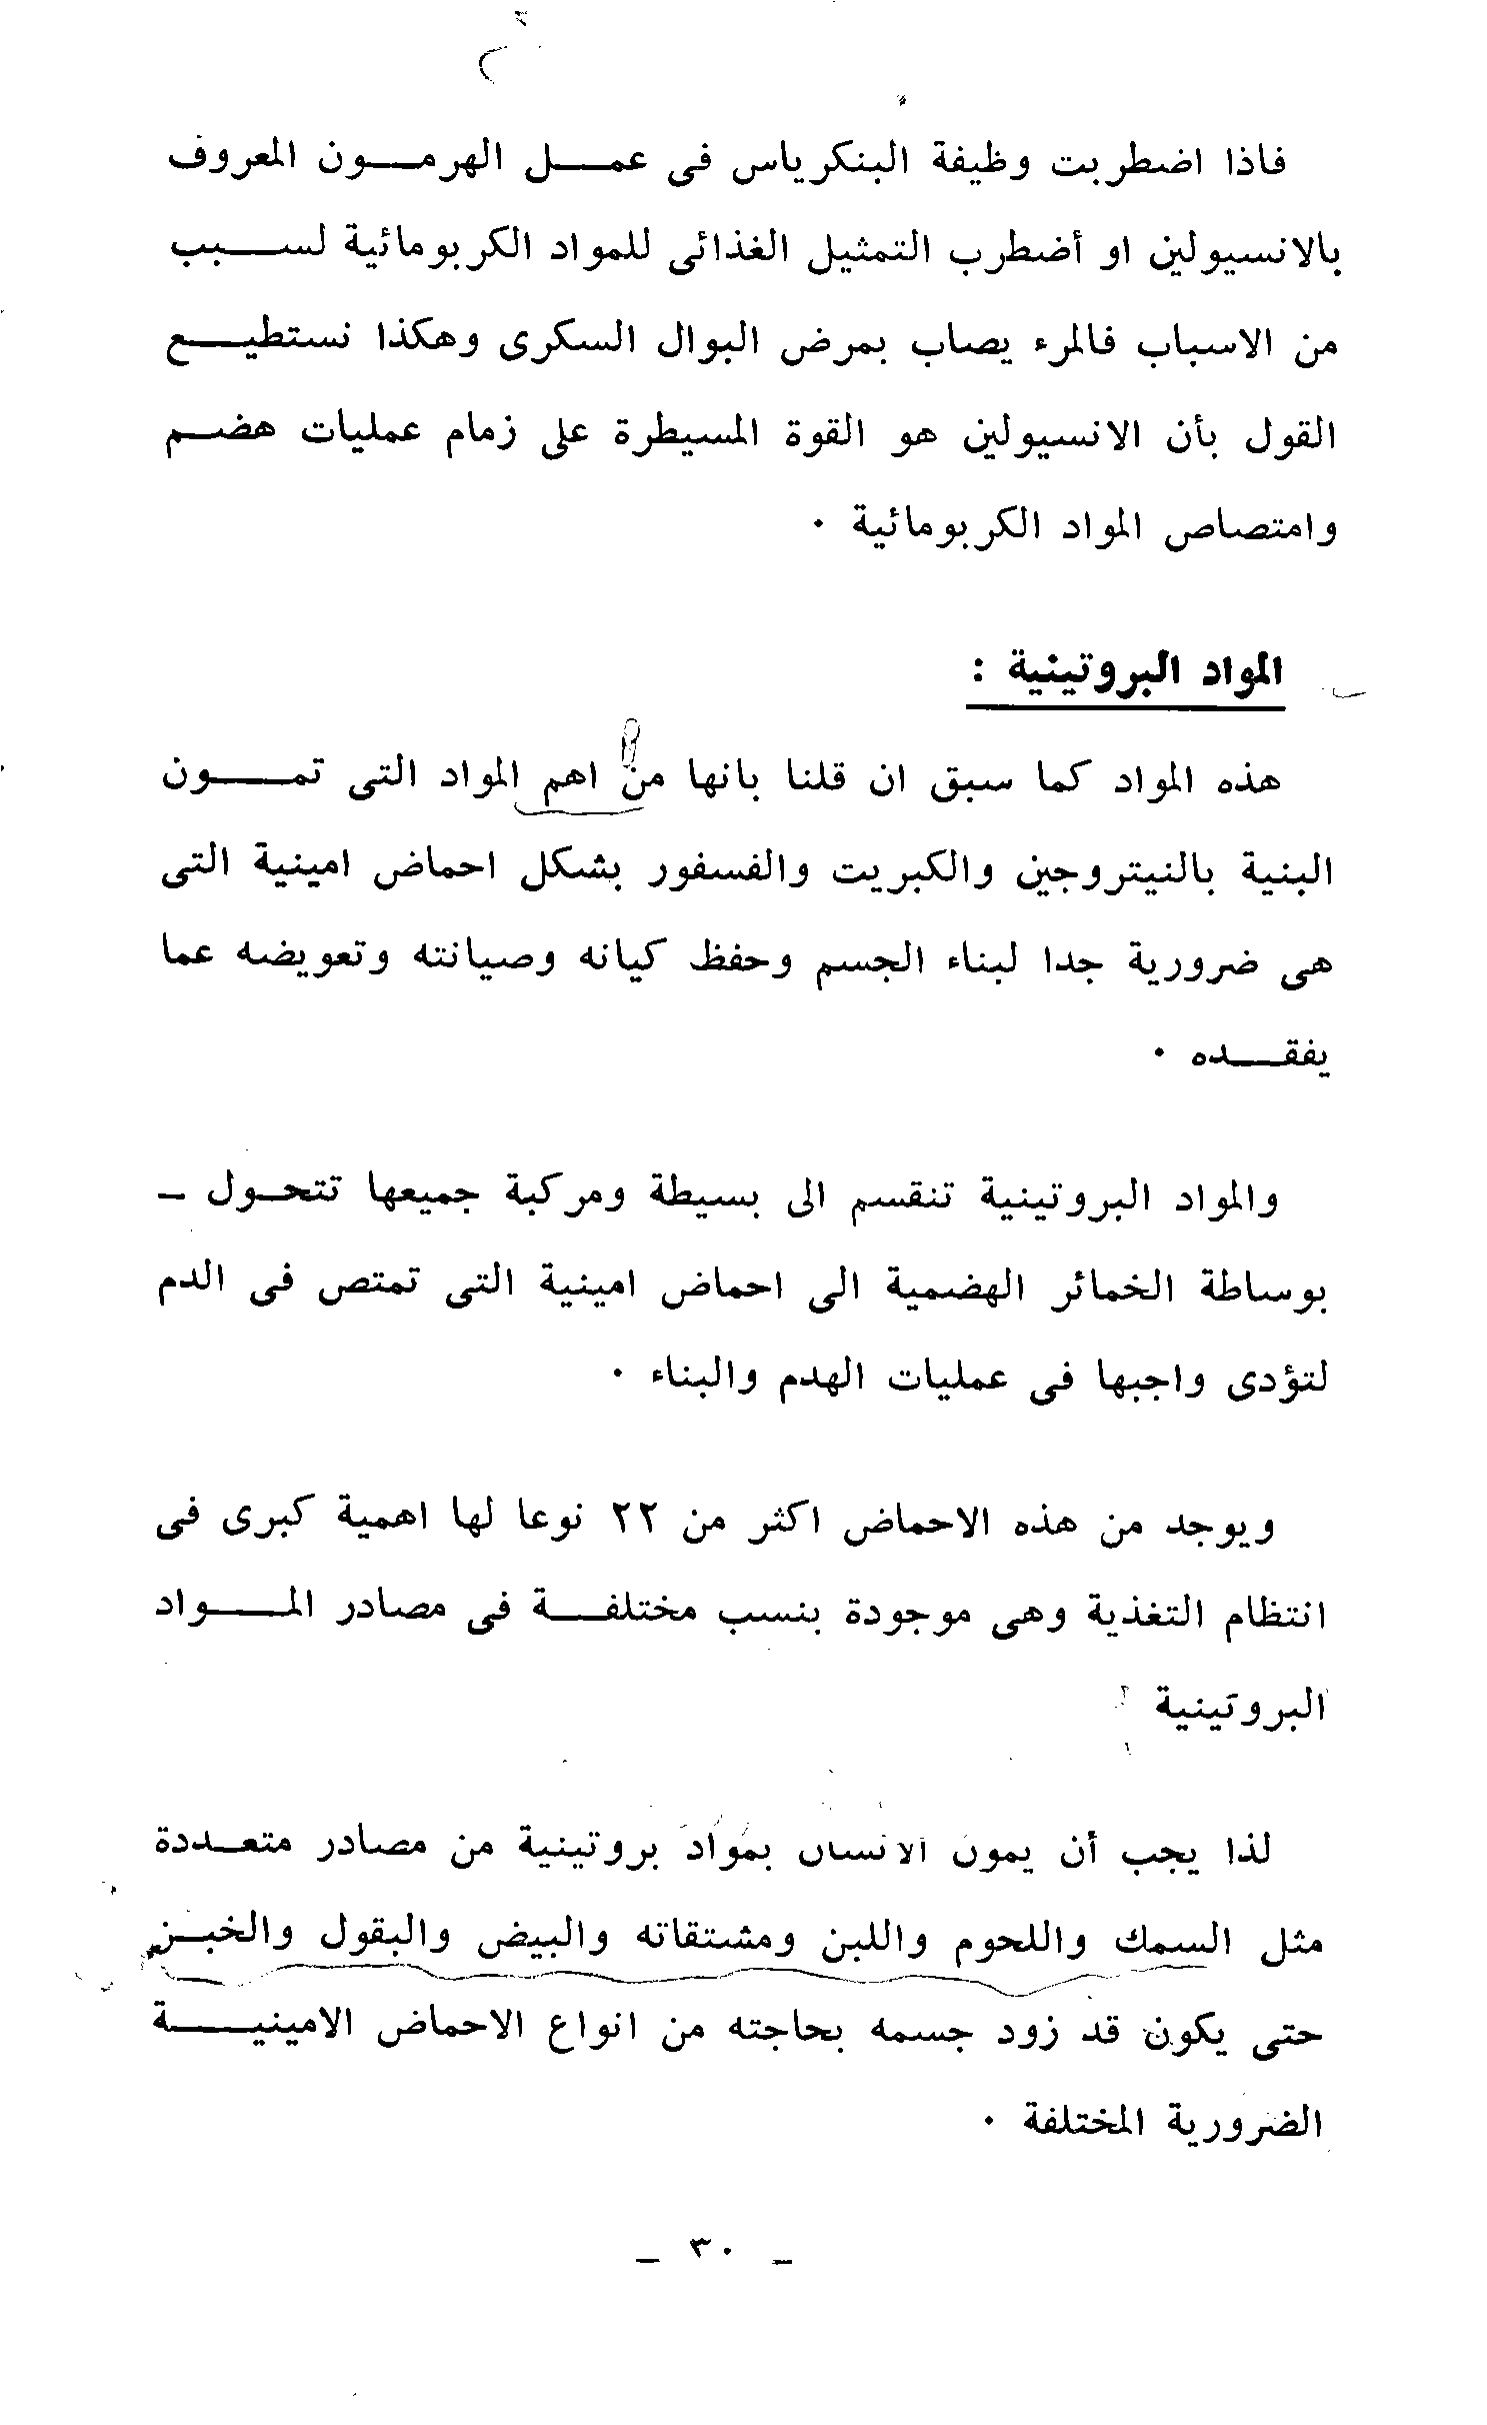 فاذا اضطربت وظيفة البنكرياس فى عمل الهرمون المعروف
بالانسيولين او أضطرب التمثيل الغذائى للمواد الكربومائية لسبب
من الاسباب فالمرء يصاب بمرض البوال السكرى وهكذا نستطيع
القول بأن الانسيولين هو القوة المسيطرة على زمام عمليات هضم
وامتصاص المواد الكربومائية ٠
المواد البروتينية :
هذه المواد كما سبق ان قلنا بانها من اهم المواد التى تمون
البنية بالنيتروجين والكبريت والفسفور بشكل احماض امينية التى
هى ضرورية جدا لبناء الجسم وحفظ كيانه وصيانته وتعويضه عما
يفقده ٠
والمواد البروتينية تنقسم الى بسيطة ومركبة جميعها تتحول –
بوساطة الخمائر الهضمية الى احماض امينية التى تمتص فى الدم
لتؤدى واجبها فى عمليات الهدم والبناء ٠
ويوجد من هذه الاحماض اكثر من ٢٢ نوعا لها اهمية كبرى فى
انتظام التغذية وهى موجودة بنسب مختلفة فى مصادر المواد
البروتينية
لذا يجب أن يمون الانسان بمواد بروتينية من مصادر متعددة
مثل السمك واللحوم واللبن ومشتقاته والبيض والبقول والخبز
حتى يكون قد زود جسمه بحاجته من انواع الاحماض الامينية
الضرورية المختلفة ٠
– ٣٠ –